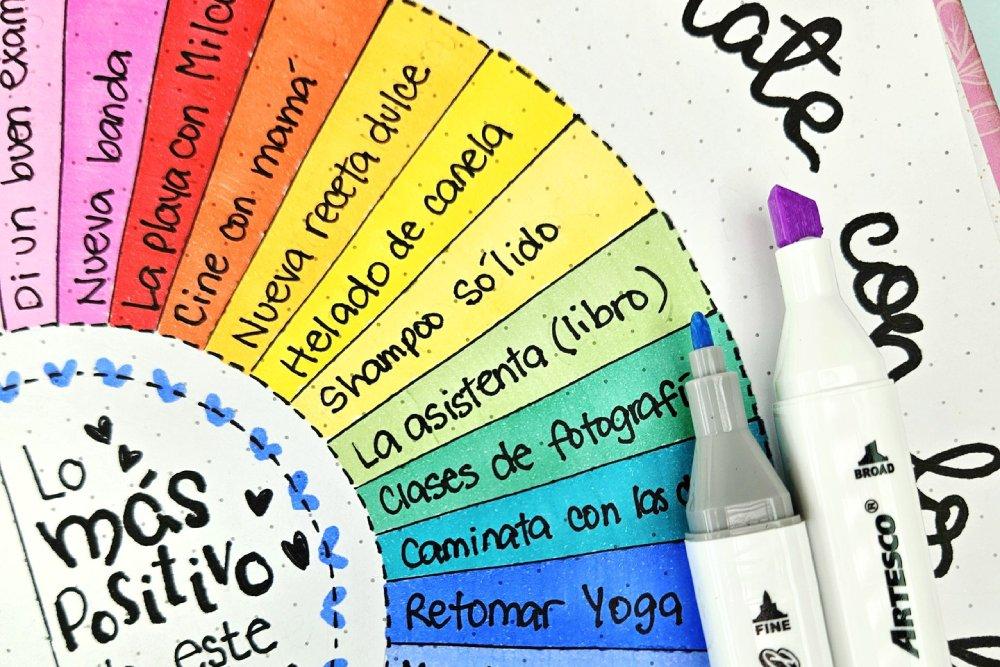 Di un buen exam
Nueva banda
La playa con Milo
Cine con mamá
Nueva receta dulce
Helado de canela
Shampoo sólido
La asistenta (libro)
Clases de fotografí
Caminata con las
Retomar Yoga
Lo
más
Positivo
este
con
BROAD
ARTESCO®
FINE